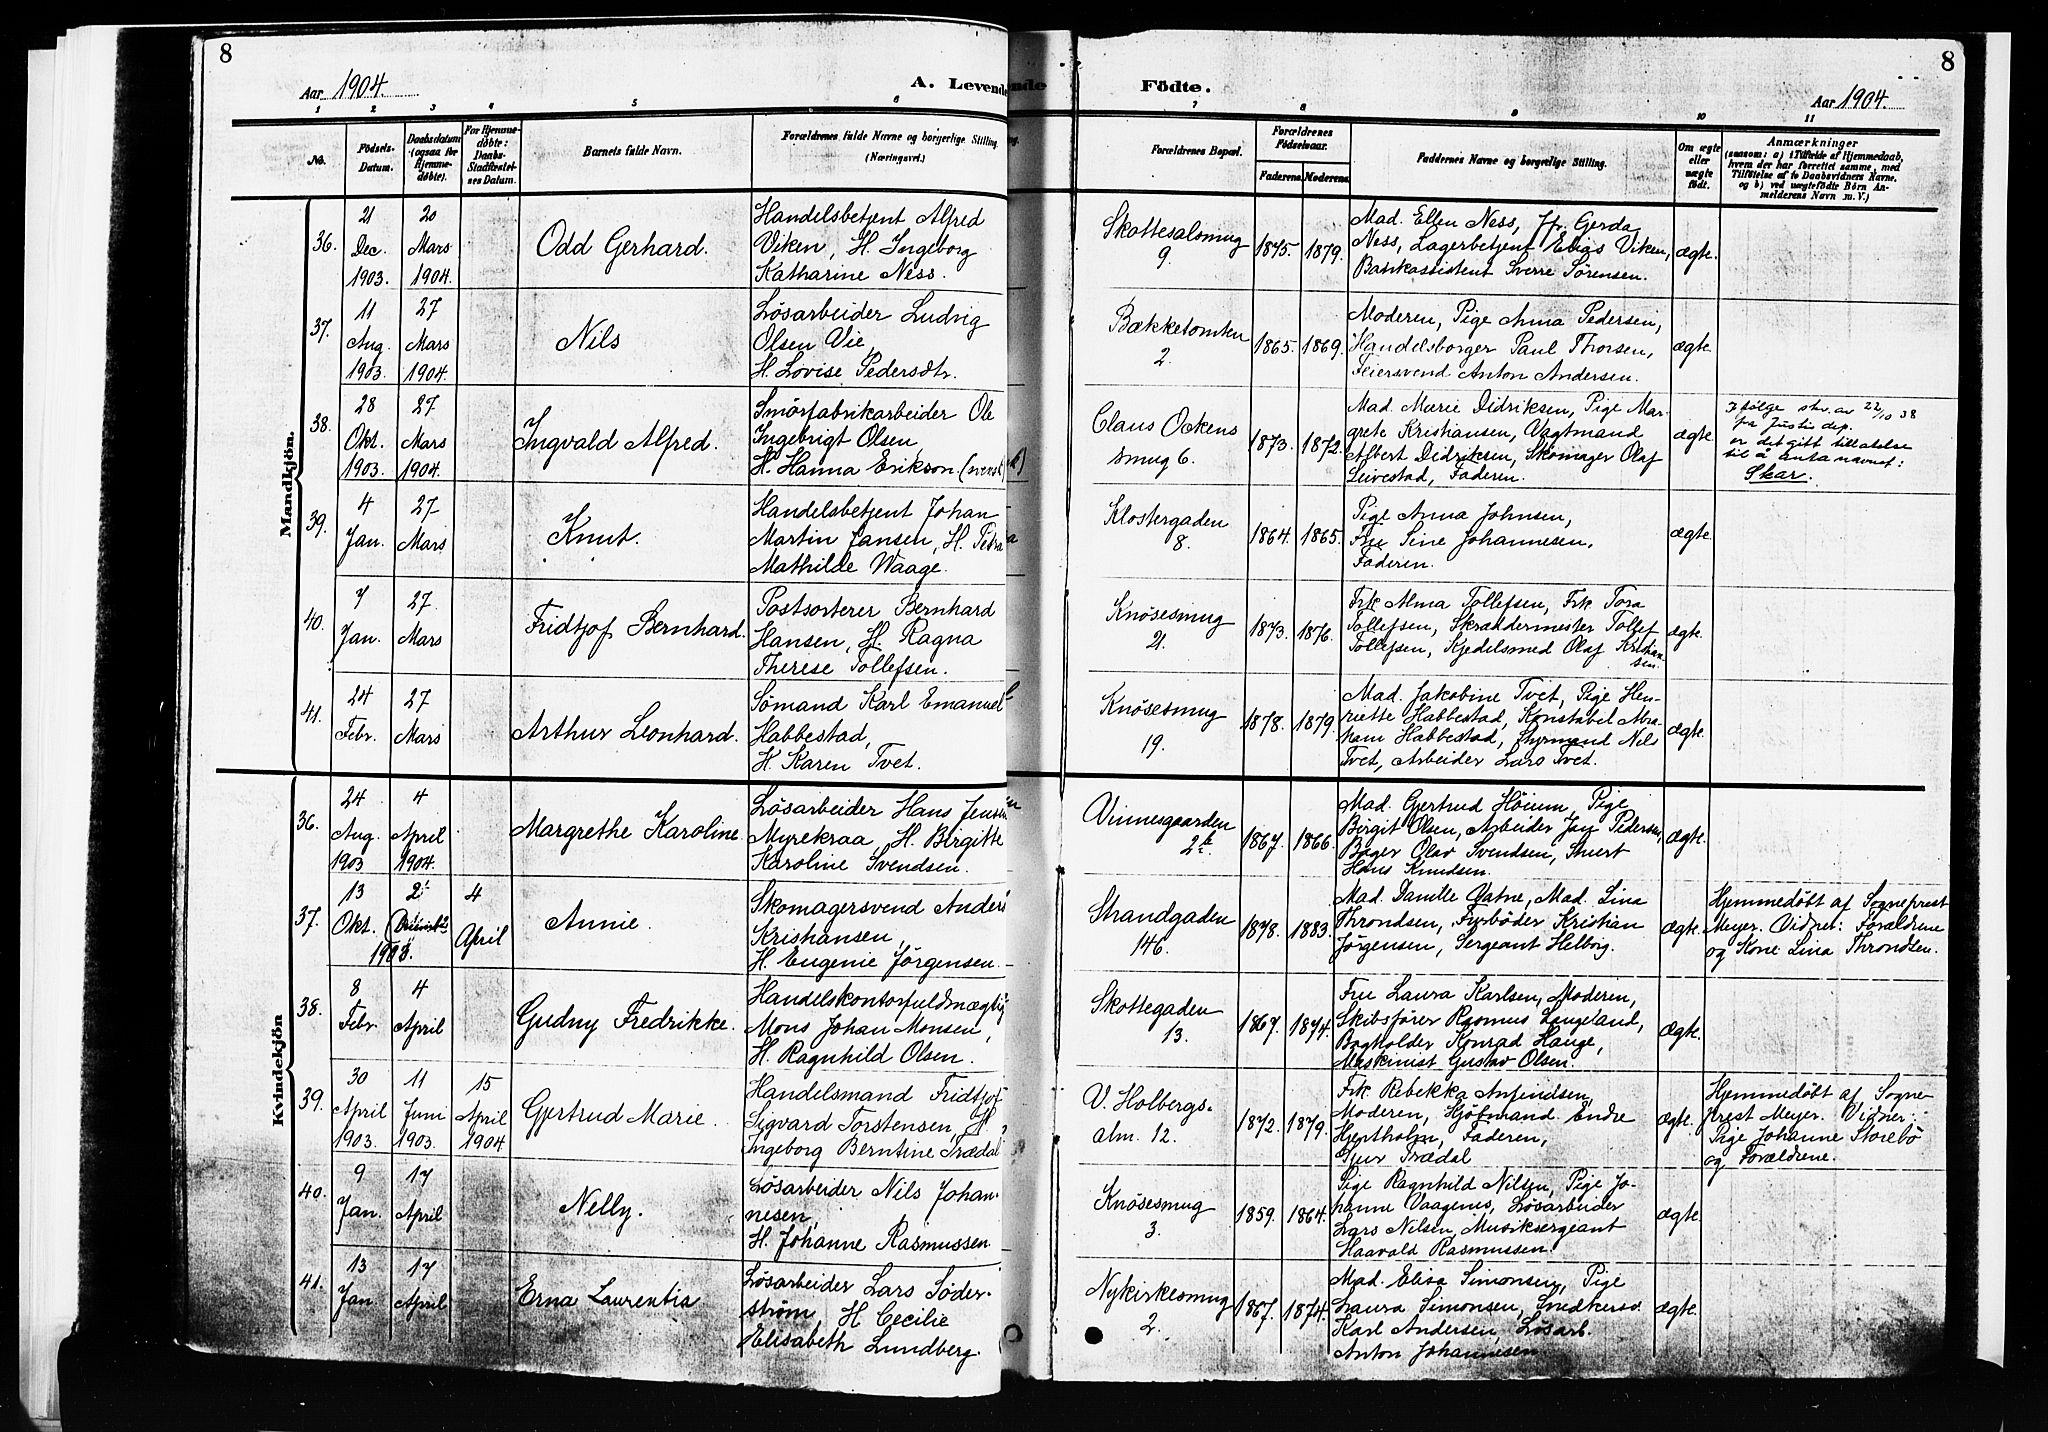 8
8
Aar 1904.
A. Levende
Födte.
Aar 1904.
1 2 3 4 5 6 7 8 9 10 11
No.
Födsels-Datum.
Daabsdatum (ogsaa for Hjemme-döbte).
For Hjemme-döbte: Daabs-Stadfæstel-ses Datum.
Barnets fulde Navn.
Forældrenes fulde Navne og borgerlige Stilling.
(Næringsvei.)
Forældrenes Bopæl.
Forældrenes Födselsaar.
Faderens. Moderens.
Faddernes Navne og borgerlige Stilling.
Om ægte eller uægte födt.
Anmærkninger
(saasom: a) i Tilfælde af Hjemmedaab,
hvem der har forrettet samme, med
Tilföielse af to Daabsvidners Navne,
og b) ved uægtefödte Börn An-
melderens Navn m. V.)
Mandkjön.
36.
21 Dec. 1903.
20 Mars 1904.
Odd Gerhard.
Handelsbetjent Alfred
Viken, H. Ingeborg
Katharine Ness.
Skottesalsmug
9.
1875. 1879.
Mad. Ellen Ness, Fr. Gerda
Ness, Lagerbetjent Elias Viken,
Bankassistent Sverre Sørensen.
ægte.
37.
11 Aug. 1903.
27 Mars 1904.
Nils
Løsarbeider Ludvig
Olsen Vie,
H. Lovise Pedersdtr.
Bækketomten
2.
1865. 1869.
Moderen, Pige Anna Pedersen,
Handelsborger Paul Thorsen,
Feiersvend Anton Andersen.
ægte.
38.
28 Okt. 1903.
27 Mars 1904.
Ingvald Alfred.
Smörfabrikarbeider Ole
Ingebrigt Olsen
H. Hanna Erikson (svensk)
Claus Ockens
smug 6.
1873. 1872.
Mad. Marie Didriksen, Pige Mar-
grete Kristiansen, Vagtmand
Albert Didriksen, Skomager Olaf
Leivestad, Faderen.
ægte.
Ifølge skr. av 22/10 38
fra Justis dep.
er det gitt tillatelse
til å anta navnet:
Skar.
39.
4 Jan.
27 Mars
Knut.
Handelsbetjent Johan
Martin Jansen, H. Petra
Mathilde Waage.
Klostergaden
8.
1864. 1865.
Pige Anna Johnsen,
Fru Sine Johannesen,
Faderen.
ægte.
40.
7 Jan.
27. Mars
Fridtjof Bernhard.
Postsorterer Bernhard
Hansen, H. Ragna
Therese Tollefsen.
Knösesmug
21.
1873. 1876.
Frk. Alma Tollefsen, Frk. Tora
Tollefsen, Skrædermester Tollef
Tollefsen, Kjedelsmed Olaf Kristian-
sen.
ægte.
41.
24 Febr.
27 Mars
Arthur Leonhard.
Sömand Karl Emanuel
Habbestad,
H. Karen Tvet.
Knösesmug
19.
1878. 1879.
Mad. Jakobine Tvet, Pige Hen-
riette Habbestad, Konstabel Abra-
ham Habbestad, Styrmand Nils
Tvet, Arbeider Lars Tvet.
ægte.
Kvindekjön
36.
24 Aug. 1903
4 April 1904.
Margrethe Karoline.
Løsarbeider Hans Jensen
Myrekraa, H. Birgitte
Karoline Svendsen.
Vinnesgaarden
2b.
1867. 1866.
Mad. Gertrud Höium, Pige
Birgit Olsen, Arbeider Jan Pedersen,
Bager Olav Svendsen, Stuert
Hans Knudsen.
ægte.
37.
13 Okt.
1903.
4 April
Annie.
Skomagersvend Anders
Kristiansen,
H. Eugenie Jørgensen.
Strandgaden
146.
1878. 1883.
Mad. Danille Vatne, Mad. Lina
Throndsen, Fyrböder Kristian
Jørgensen, Sergeant Helberg.
ægte.
Hjemmedöbt af Sogneprest
Meyer. Vidner: Forældrene
og Kone Lina Throndsen.
38.
8 Febr.
4 April
Gudny Fredrikke.
Handelskontorfuldmægtig
Mons Johan Monsen,
H. Ragnhild Olsen.
Skottegaden
13.
1867. 1874.
Fru Laura Karlsen, Moderen,
Skibsfører Rasmus Langeland,
Bogholder Konrad Hauge,
Maskinist Gustav Olsen.
ægte.
39.
30 April 1903.
11 Juni 1903.
15 April 1904
Gertrud Marie.
Handelsmand Fridtjof
Sigvard Torstensen, H.
Ingeborg Berntine Trædal
V. Holbergs-
alm. 12.
1872. 1879.
Frk. Rebekka Anfindsen,
Moderen, Sjömand Endre
Hjertholm, Faderen,
Trædal
ægte.
Hjemmedöbt af Sogne-
prest Meyer. Vidner:
Pige Johanne Storebö
og Forældrene.
40.
9 Jan.
17 April
Nelly.
Løsarbeider Nils Johan-
nesen,
H. Johanne Rasmussen
Knösesmug
3.
1859. 1864.
Pige Ragnhild Nilsen, Pige Jo-
hanne Vaagenes, Løsarbeider
Lars Nilsen, Musiksergeant
Haavald Rasmussen.
ægte.
41.
13 Jan.
17 April
Erna Laurentia
Løsarbeider Lars Söder-
ström, H. Cecilie
Elisabeth Lundberg.
Nykirkesmug
2.
1867. 1874.
Mad. Elisa Simonsen, Pige
Laura Simonsen, Snedkersv.
Karl Andersen, Løsarb.
Anton Johannesen.
ægte.